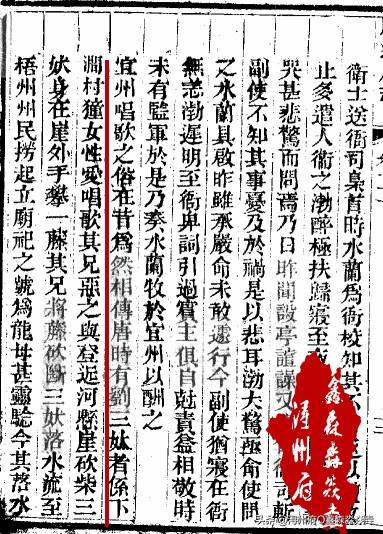 衛士送衙司梟首時水蘭爲衙校知其不
止多遣人衛之渤醉極扶歸寢至夜
哭甚悲驚而問焉乃曰昨聞設亭誼謀又司斬
副使不知其事憂及於禍是以悲耳渤大驚極命使問
之水蘭具啟昨雖承嚴命未敢遽行今副使猶寢在衙
無恙渤遲明至衙卑詞引過賓主俱自尅責益相敬時
未有監軍於是乃奏水蘭牧於宜州以酬之
宜州唱歌之俗在昔爲然相傳唐時有劉三妹者係下
澗村獞女性愛唱歌其兄惡之與登近河懸崖砍柴三
妹身在崖外手攀一藤其兄將藤砍斷三妹落水流至
梧州州民撈起立廟祀之號爲龍母甚靈驗今其落水
鑫森淼焱垚
漳州府